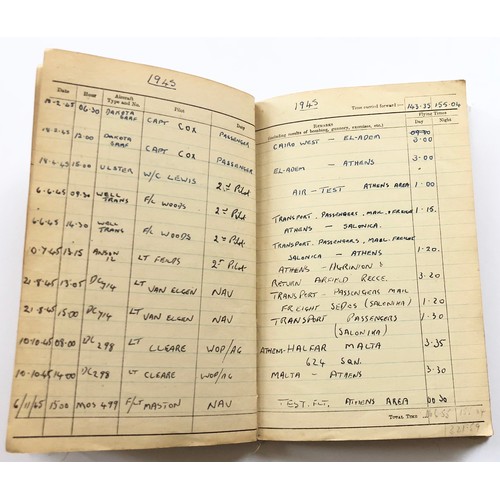 1945
Date Hour Aircraft Type and No. Pilot Duty
18·2·45 06·30 DAKOTA SAAF CAPT COX PASSENGER
18·2·45 12·00 DAKOTA SAAF CAPT COX PASSENGER
18·4·45 15·00 ULSTER W/C LEWIS 2nd Pilot
6·6·45 09·30 WELL TRANS F/L WOODS 2nd Pilot
6·6·45 14·30 WELL TRANS F/L WOODS 2nd Pilot
0·7·45 13·15 ANSON LT 2nd Pilot
21·8·45 13·05 DC 714 LT VAN ELGEN NAV
21·8·45 15·00 DC 714 LT VAN ELGEN NAV
10·10·45 08·00 DC 298 LT CLEARE WOP/AG
10·10·45 14·00 DC 298 LT CLEARE WOP/AG
6/11/45 1500 MOS 499 F/LT MASTON NAV
1945 Time carried forward:— 143·35 155·04
Remarks Flying Times
(including results of bombing, gunnery, exercises, etc.) Day Night
09·30
CAIRO WEST – EL-ADEM 3·00
EL-ADEM – ATHENS 3·00
AIR-TEST ATHENS AREA 1·00
TRANSPORT, PASSENGERS, MAIL, FREIGHT
ATHENS – SALONICA. 1·15.
TRANSPORT, PASSENGERS, MAIL, FREIGHT
SALONICA – ATHENS 1·20.
ATHENS – AGRINION &
RETURN AIRFIELD RECCE. 3·20
TRANSPORT – PASSENGERS MAIL
FREIGHT SEDES (SALONIKA) 1·20
TRANSPORT PASSENGERS 1·30
(SALONIKA)
ATHENS–HALFAR MALTA 3·35
624 SQN.
MALTA – ATHENS 3·30
TEST. FLT. ATHENS AREA 00·30
Total Time